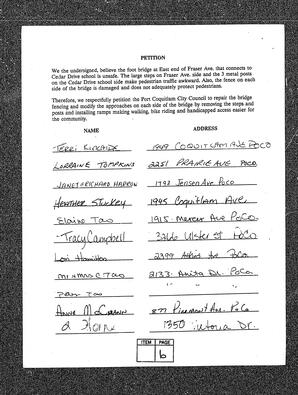 PETITION
We the undersigned, believe the foot bridge at East end of Fraser Ave. that connects to
Cedar Drive school is unsafe. The large steps on Fraser Ave. side and the 3 metal posts
on the Cedar Drive side make pedestrian traffic awkward. Also, the fence on each
side of the bridge is damaged and does not adequately protect pedestrians.
Therefore, we respectfully petition the Port Coquitlam City Council to repair the bridge
fencing and modify the approaches on each side of the bridge by removing the steps and
posts and installing ramps making, bike riding and handicapped access easier for
the community.
NAME ADDRESS
TERRI KINCAIDE COQUITLAM AVE POCO
LORRAINE TOMPKINS 2251 PRAIRIE AVE POCO
JANET & RICHARD 1792 Jensen Ave Poco
HEATHER 1945 Coquitlam Ave.
Elaine Tao 1915 Ave PoCo.
Tracy Campbell Ulster St PoCo
Lori Hamilton Ave Poco
TAO 2133 Anita Dr. PoCo.
TAO " "
Anne Ave. PoCo
1350 Dr.
ITEM PAGE
6